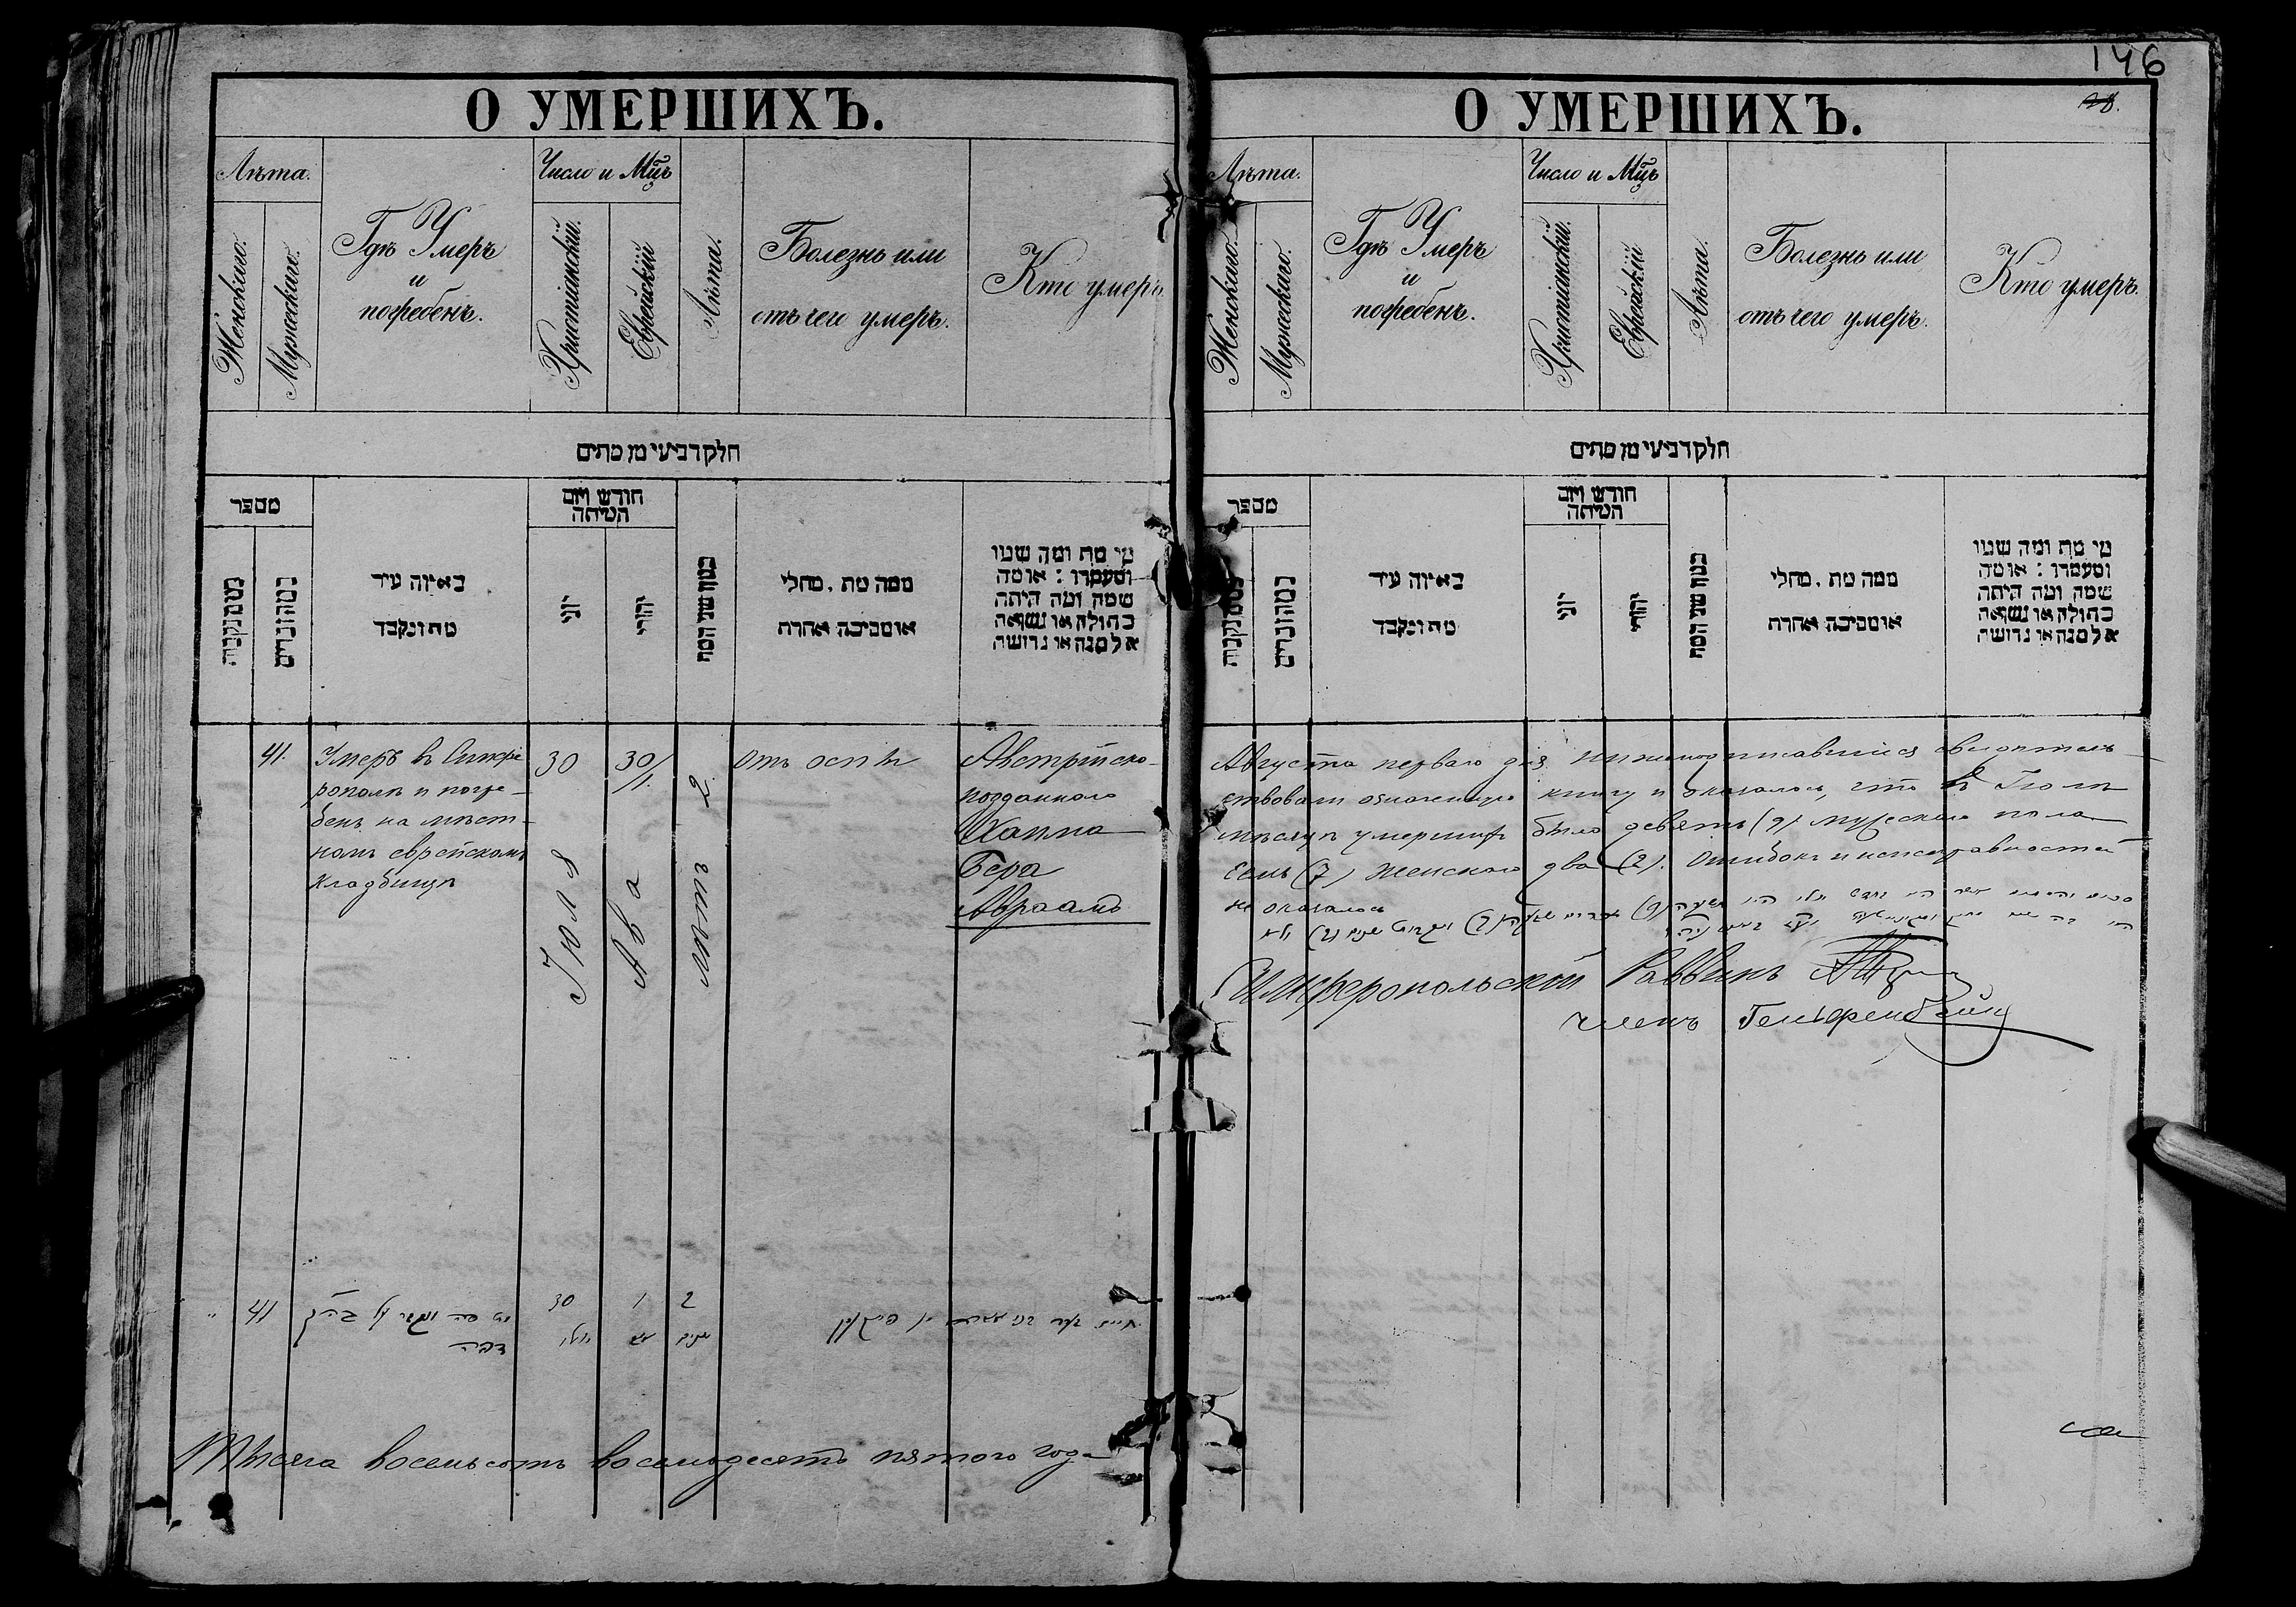 146
28.
О УМЕРШИХЪ.
Лѣта.
Женскаго.
Мужескаго.
Гдѣ Умеръ
и
погребенъ.
Число и Мцъ
Христіанскій.
Еврейскій
Лѣта.
Болезнь или
отъ чего умеръ.
Кто умеръ.
חלק רביעי מן מתים
מספר
באיזה עיר
מת ונקבר
חודש ויום
המיתה
יוני
יהודי
ממה מת . מחלי
או מסיבה אחרת
מי מת ומה שמו
ומעמדו : או מה
שמה ומה היתה
בתולה או נשואה
אלמנה או גרושה
41.
Умеръ въ Симфе
рополѣ и погре-
бенъ на мѣст-
номъ еврейскомъ
кладбищѣ
30
Іюля
30/1.
Ава
2
лѣтъ
Отъ оспы
Австрійско-
подданного
Бера
Авраамъ
41
30
1
2
יולי
אב
שנים
Тысяча восемьсотъ восемьдесятъ пятого года
О УМЕРШИХЪ.
Лѣта.
Женскаго.
Мужескаго.
Гдѣ Умеръ
и
погребенъ.
Число и Мцъ
Христіанскій.
Еврейскій
Лѣта.
Болезнь или
отъ чего умеръ.
Кто умеръ.
חלק רביעי מן מתים
מספר
באיזה עיר
מת ונקבר
חודש ויום
המיתה
יוני
יהודי
ממה מת . מחלי
או מסיבה אחרת
מי מת ומה שמו
ומעמדו : או מה
שמה ומה היתה
בתולה או נשואה
אלמנה או גרושה
Августа перваго дня нижеподписавшіеся свидѣтель-
ствовали означенную книгу и оказалось, что въ Іюлѣ
мѣсяцѣ умершихъ было девять (9) мужескаго пола
семь (7) женскаго два (2). Ошибокъ и неисправностей
не оказалось
Симферопольскій Раввинъ
Членъ